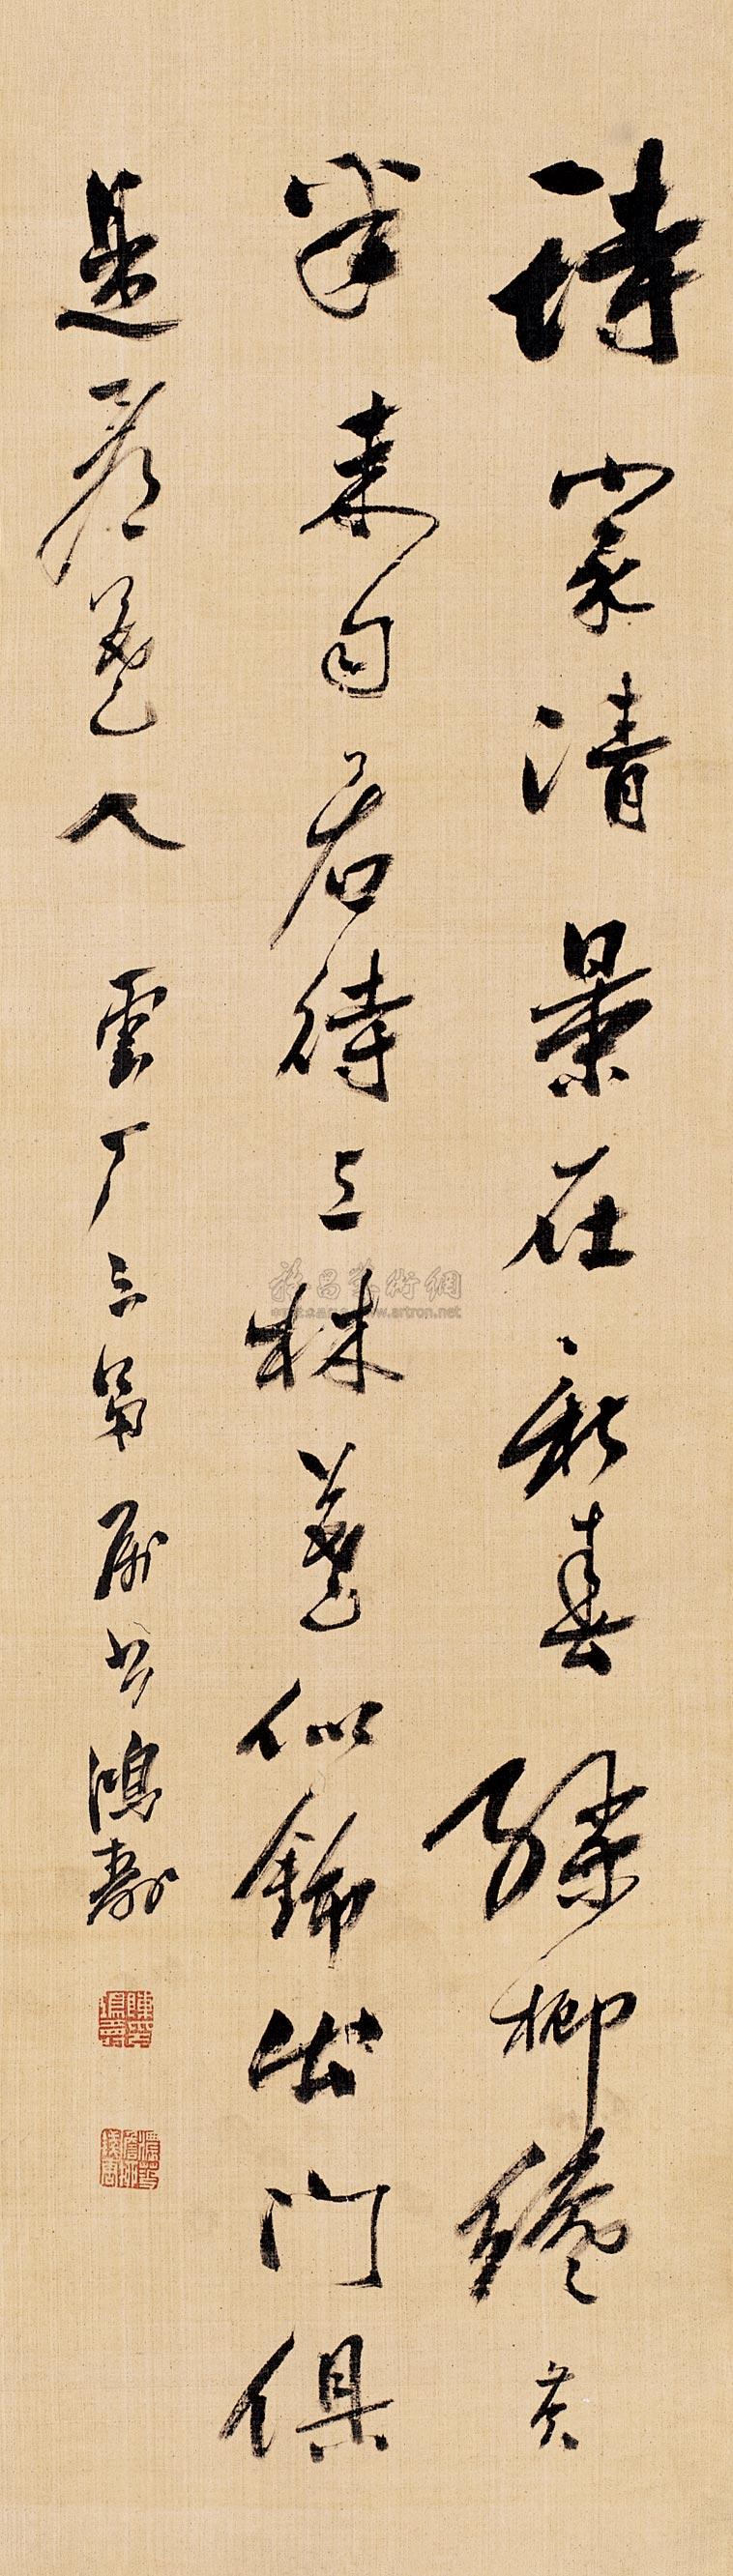 詩家清景在新春綠柳纔黃
半未匀若待上林花似錦出門俱
是看花人 雲厂三弟屬書 鴻壽
雅昌藝術網
www.artron.net